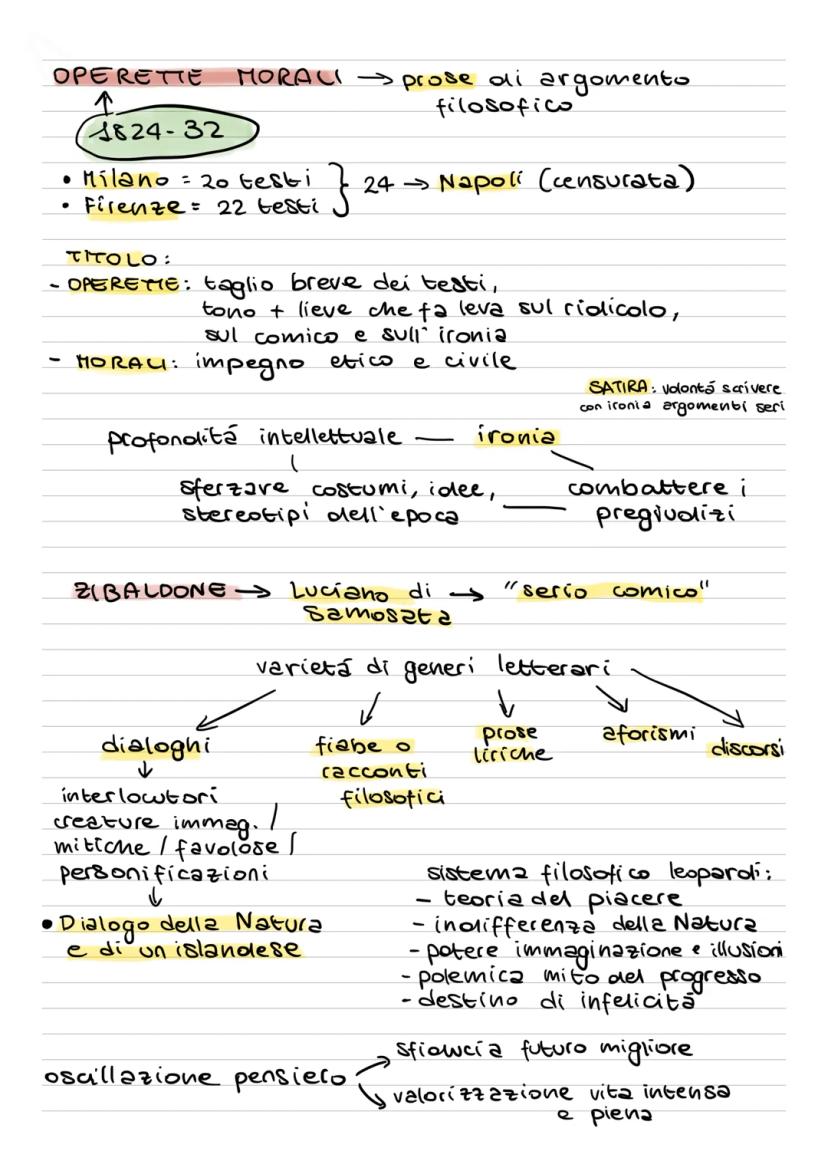 OPERETTE MORALI → prose di argomento
filosofico
1824-32
• Milano = 20 testi } 24 → Napoli (censurata)
• Firenze = 22 testi
TITOLO:
- OPERETTE: taglio breve dei testi,
tono + lieve che fa leva sul ridicolo,
sul comico e sull'ironia
- MORALI: impegno etico e civile
SATIRA: volontá scrivere
con ironia argomenti seri
profonditá intellettuale — ironia
sferzare costumi, idee,
stereotipi dell'epoca
combattere i
pregiudizi
ZIBALDONE → Luciano di → "serio comico"
Samosata
varietá di generi letterari
dialoghi
fiabe o
racconti
filosofici
prose
liriche
aforismi
discorsi
interlocutori
creature immag. /
mitiche / favolose /
personificazioni
• Dialogo della Natura
e di un islandese
sistema filosofico leopardi:
- teoria del piacere
- indifferenza della Natura
- potere immaginazione e illusioni
- polemica mito del progresso
- destino di infelicitá
oscillazione pensiero
sfiducia futuro migliore
valorizzazione vita intensa
e piena